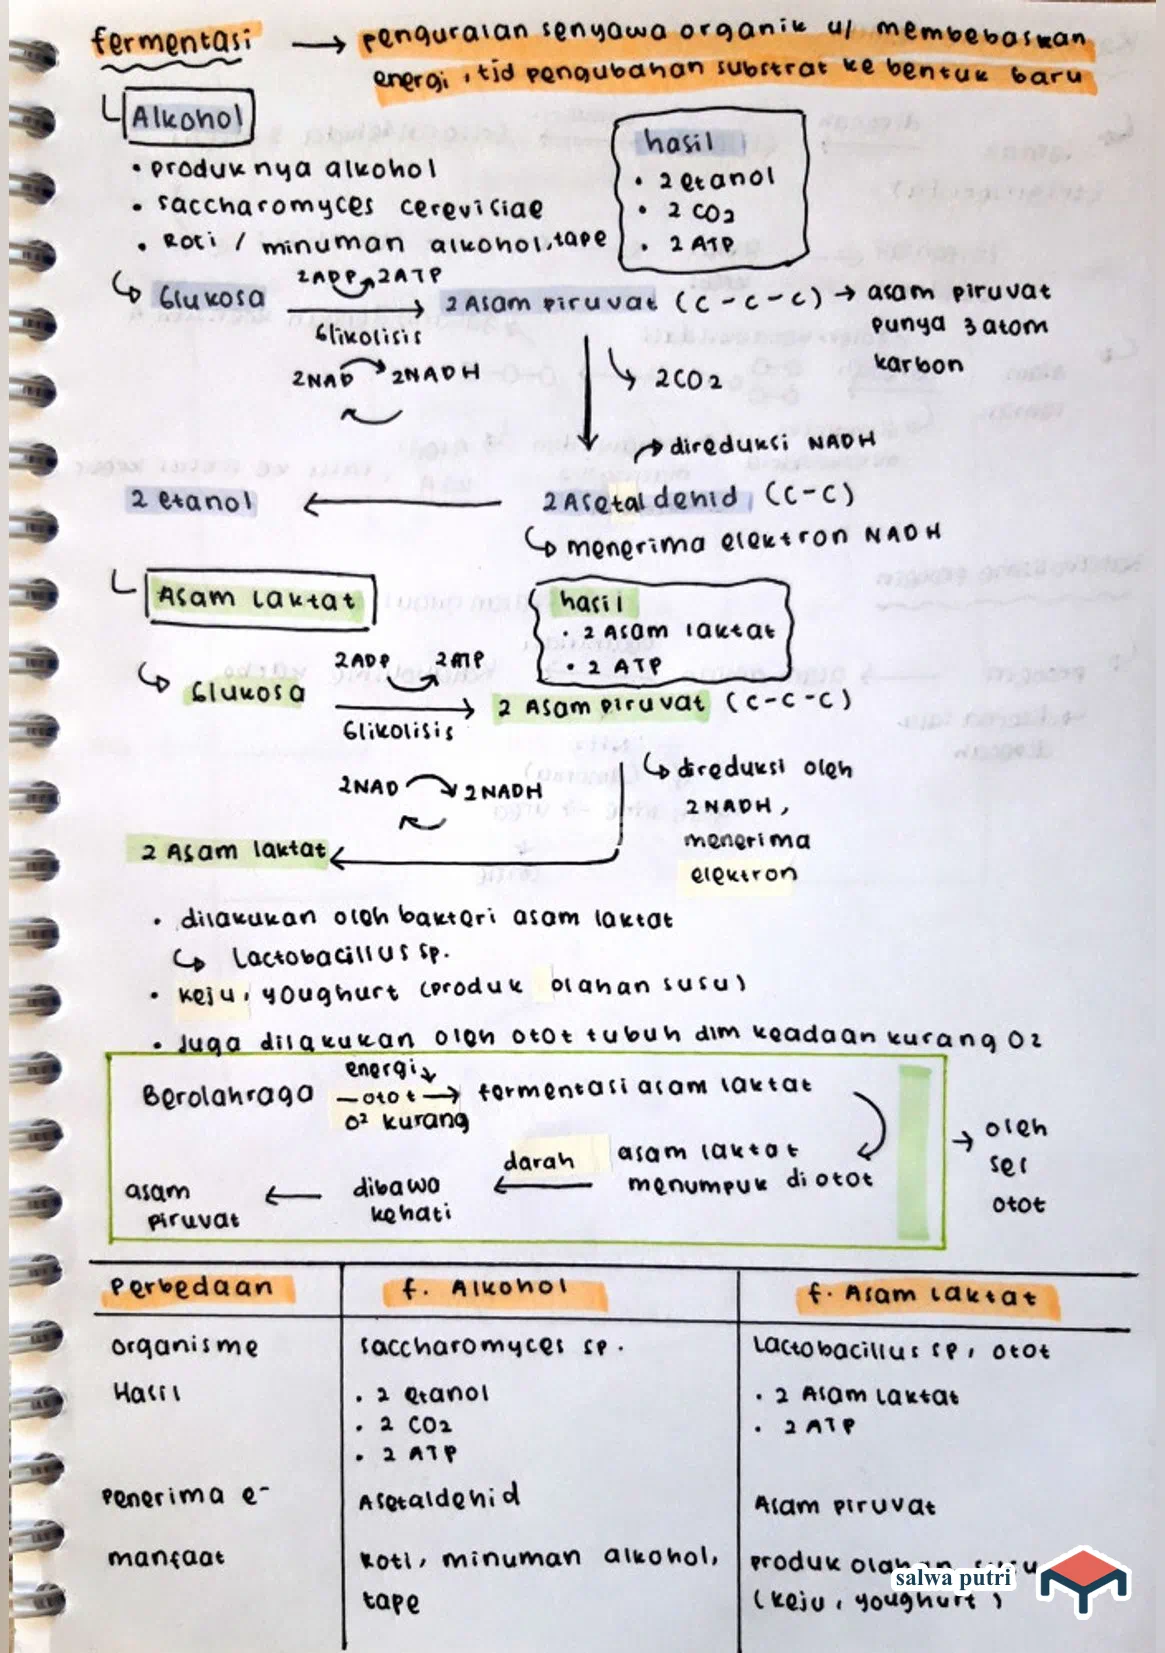 fermentasi → penguraian senyawa organik u/ membebaskan
energi, tjd pengubahan substrat ke bentuk baru
Alkohol
• produknya alkohol
• saccharomyces cerevisiae
• Roti / minuman alkohol, tape
hasil
• 2 etanol
• 2 CO2
• 2 ATP
2ADP 2ATP
Glukosa → 2 Asam piruvat (C-C-C) → asam piruvat
punya 3 atom
karbon
Glikolisis
2NAD 2NADH
2CO2
direduksi NADH
2 etanol ← 2 Asetaldehid (C-C)
menerima elektron NADH
Asam laktat
hasil
• 2 Asam laktat
• 2 ATP
2ADP 2ATP
Glukosa → 2 Asam piruvat (C-C-C)
Glikolisis
2NAD 2NADH
direduksi oleh
2NADH,
menerima
elektron
2 Asam laktat
• dilakukan oleh bakteri asam laktat
Lactobacillus sp.
• keju, youghurt (produk olahan susu)
• Juga dilakukan oleh otot tubuh dlm keadaan kurang O2
energi
Berolahraga — otot → fermentasi asam laktat
O2 kurang
asam laktat
menumpuk di otot
darah
dibawa
kehati
asam
piruvat
→ oleh
sel
otot
Perbedaan f. Alkohol f. Asam laktat
organisme saccharomyces sp. Lactobacillus sp, otot
Hasil • 2 etanol • 2 Asam laktat
• 2 CO2 • 2 ATP
• 2 ATP
penerima e- Asetaldehid Asam piruvat
manfaat Roti, minuman alkohol, produk olahan susu
tape (keju, youghurt)
salwa putri